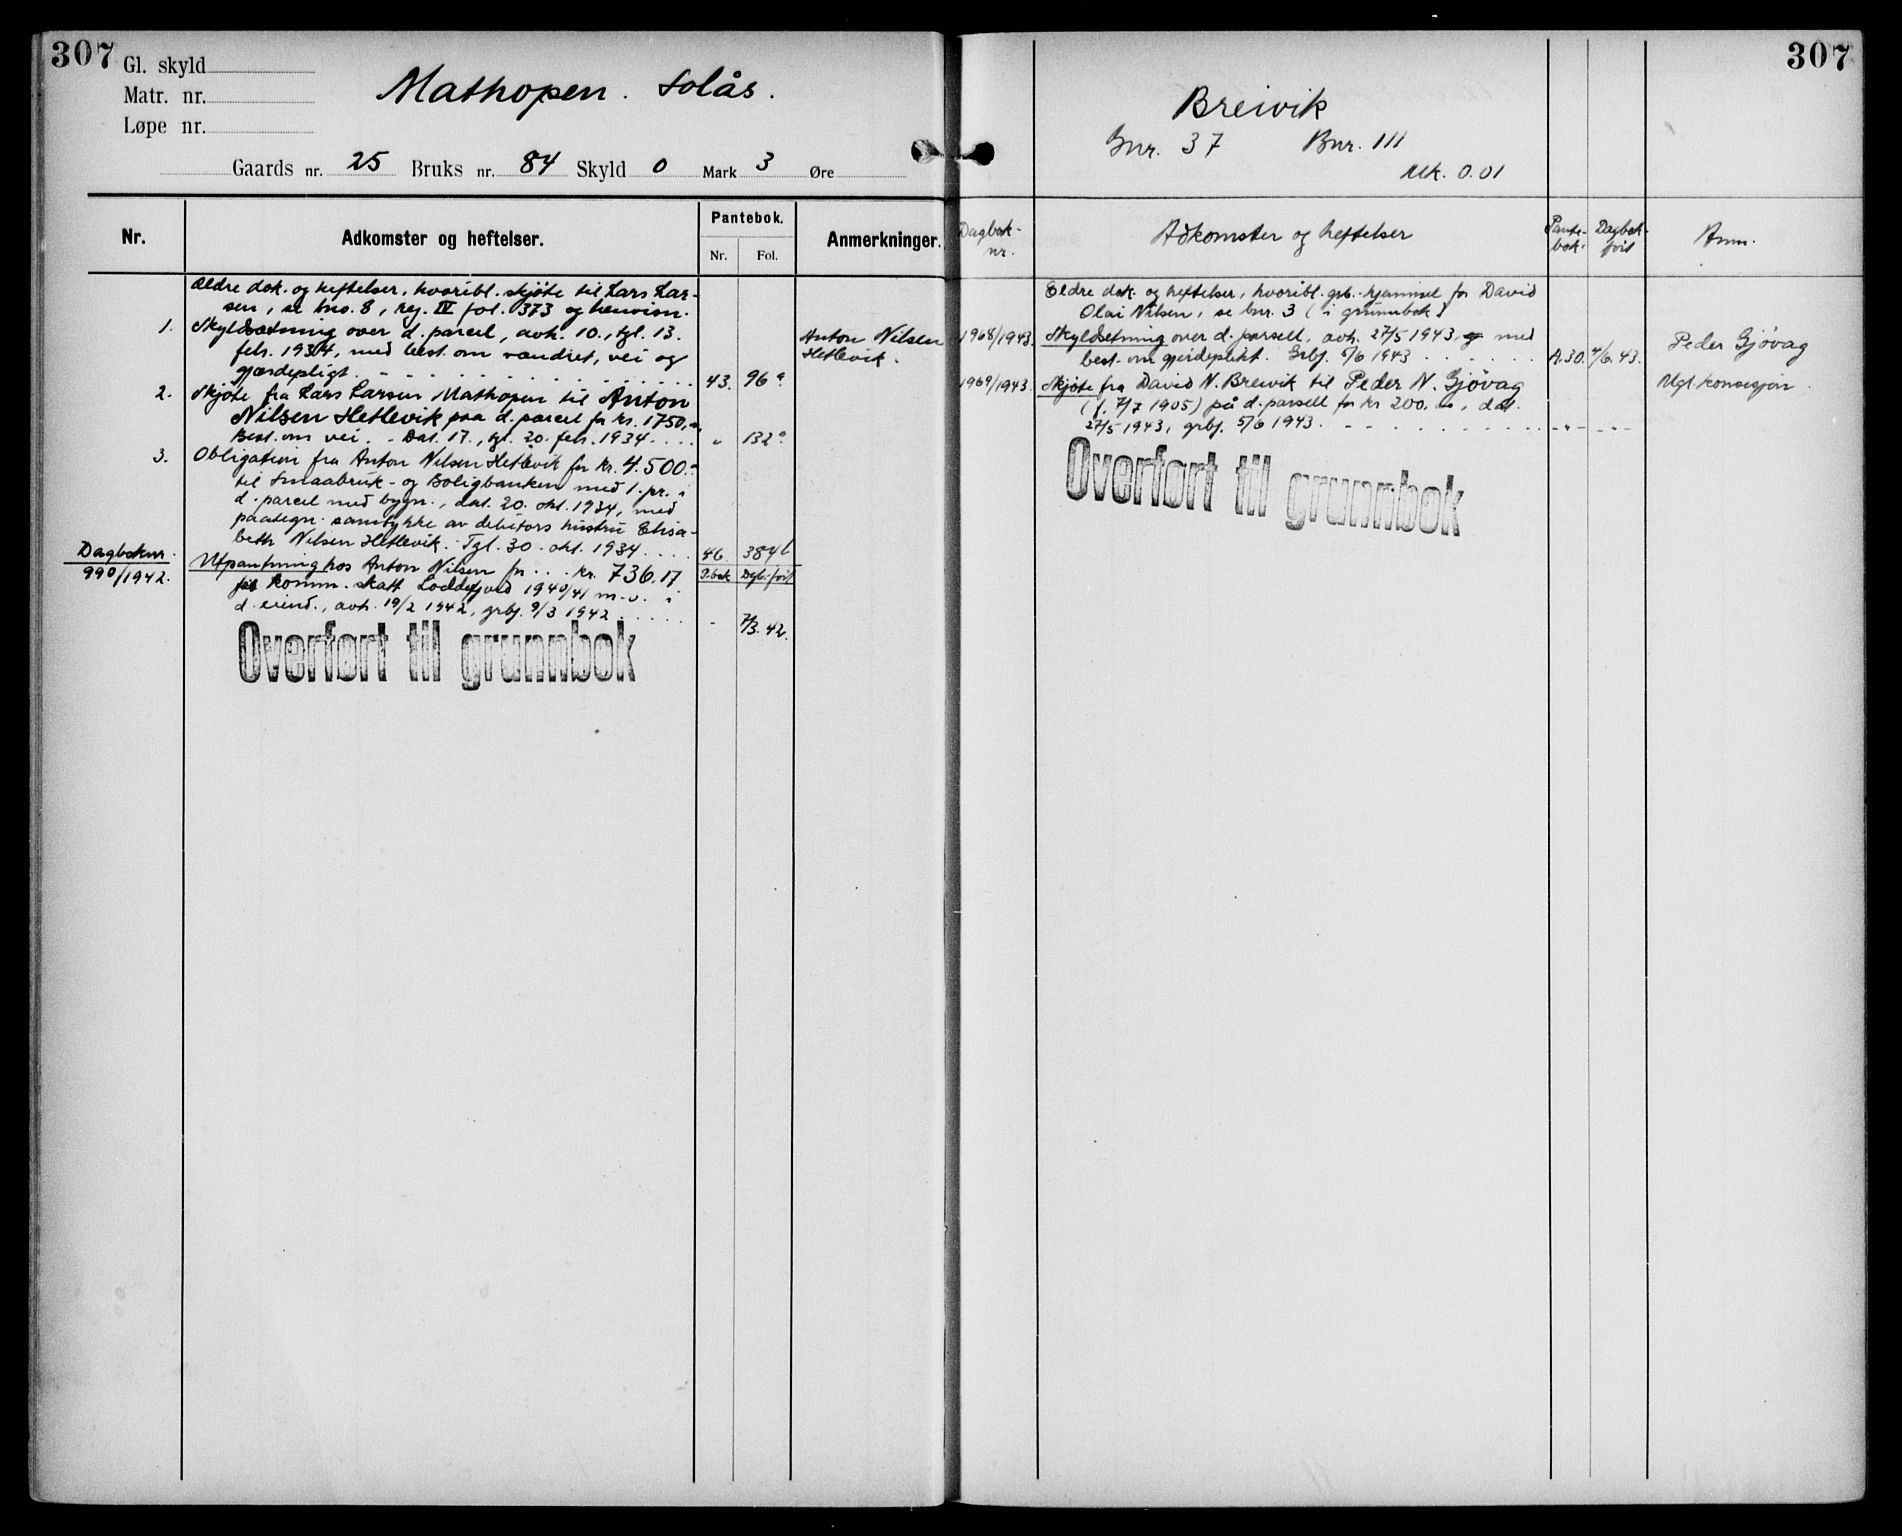 307
Gl. skyld
Matr. nr.
Løpe nr.
Mathopen. Solås.
Gaards nr. 25 Bruks nr. 84 Skyld 0 Mark 3 Øre
Nr. Adkomster og heftelser. Pantebok. Nr. Fol. Anmerkninger.
Ældre dok. og heftelser, hvoribl. skjøte til Lars Lar-
sen, se bno. 8, reg. IV fol. 373 og henvisn.
1. Skyldsætning over d. parcel, avh. 10., tgl. 13.
febr. 1934, med best. om vandret, vei og
gjærdepligt. 43. 96a
Anton Nilsen
Hetlevik.
2. Skjøte fra Lars Larsen Mathopen til Anton
Nilsen Hetlevik paa d. parcel for kr. 1750,-
Best. om vei. - Dat. 17., tgl. 20. febr. 1934 .... " 132a
3. Obligation fra Anton Nilsen Hetlevik for kr. 4.500.-
til Smaabruk- og Boligbanken med 1. pr. i
d. parcel med bygn., dat. 20. okt. 1934, med
paategn. samtykke av debitors hustru Elisa-
beth Nilsen Hetlevik. Tgl. 30. okt. 1934 .... 46 384b
Dagboknr.
990/1942. Utpantning hos Anton Nilsen for ... kr. 736.17 P.bok Dgb.foil
for komm. skatt Loddefjord 1940/41 m.v. i
d. eiend., avh. 19/2 1942, grbf. 9/3 1942 ..... - 7/3. 42.
Overført til grunnbok
307
Breivik
Gnr. 37 Bnr. 111
Mk. 0.01
Dagbok-
nr. Adkomster og heftelser Pante-
bok. Dagbok-
foil Anm.
Eldre dok. og heftelser, hvoribl. grb.-hjemmel for David
Olai Nilsen, se bnr. 3 (i grunnbok)
1968/1943. Skyldsetning over d. parsell, avh. 27/5 1943, og med
best. om gjerdeplikt. Grbf. 5/6 1943 ...... A.30. 4/6.43. Peder Gjøvag
1969/1943. Skjøte fra David N. Breivik til Peder N. Gjøvag
(f. 7/7 1905) på d. parsell for kr 200.00, dat.
27/5 1943, grbf. 5/6 1943. - " - - " -
Ugl. konsesjon.
Overført til grunnbok